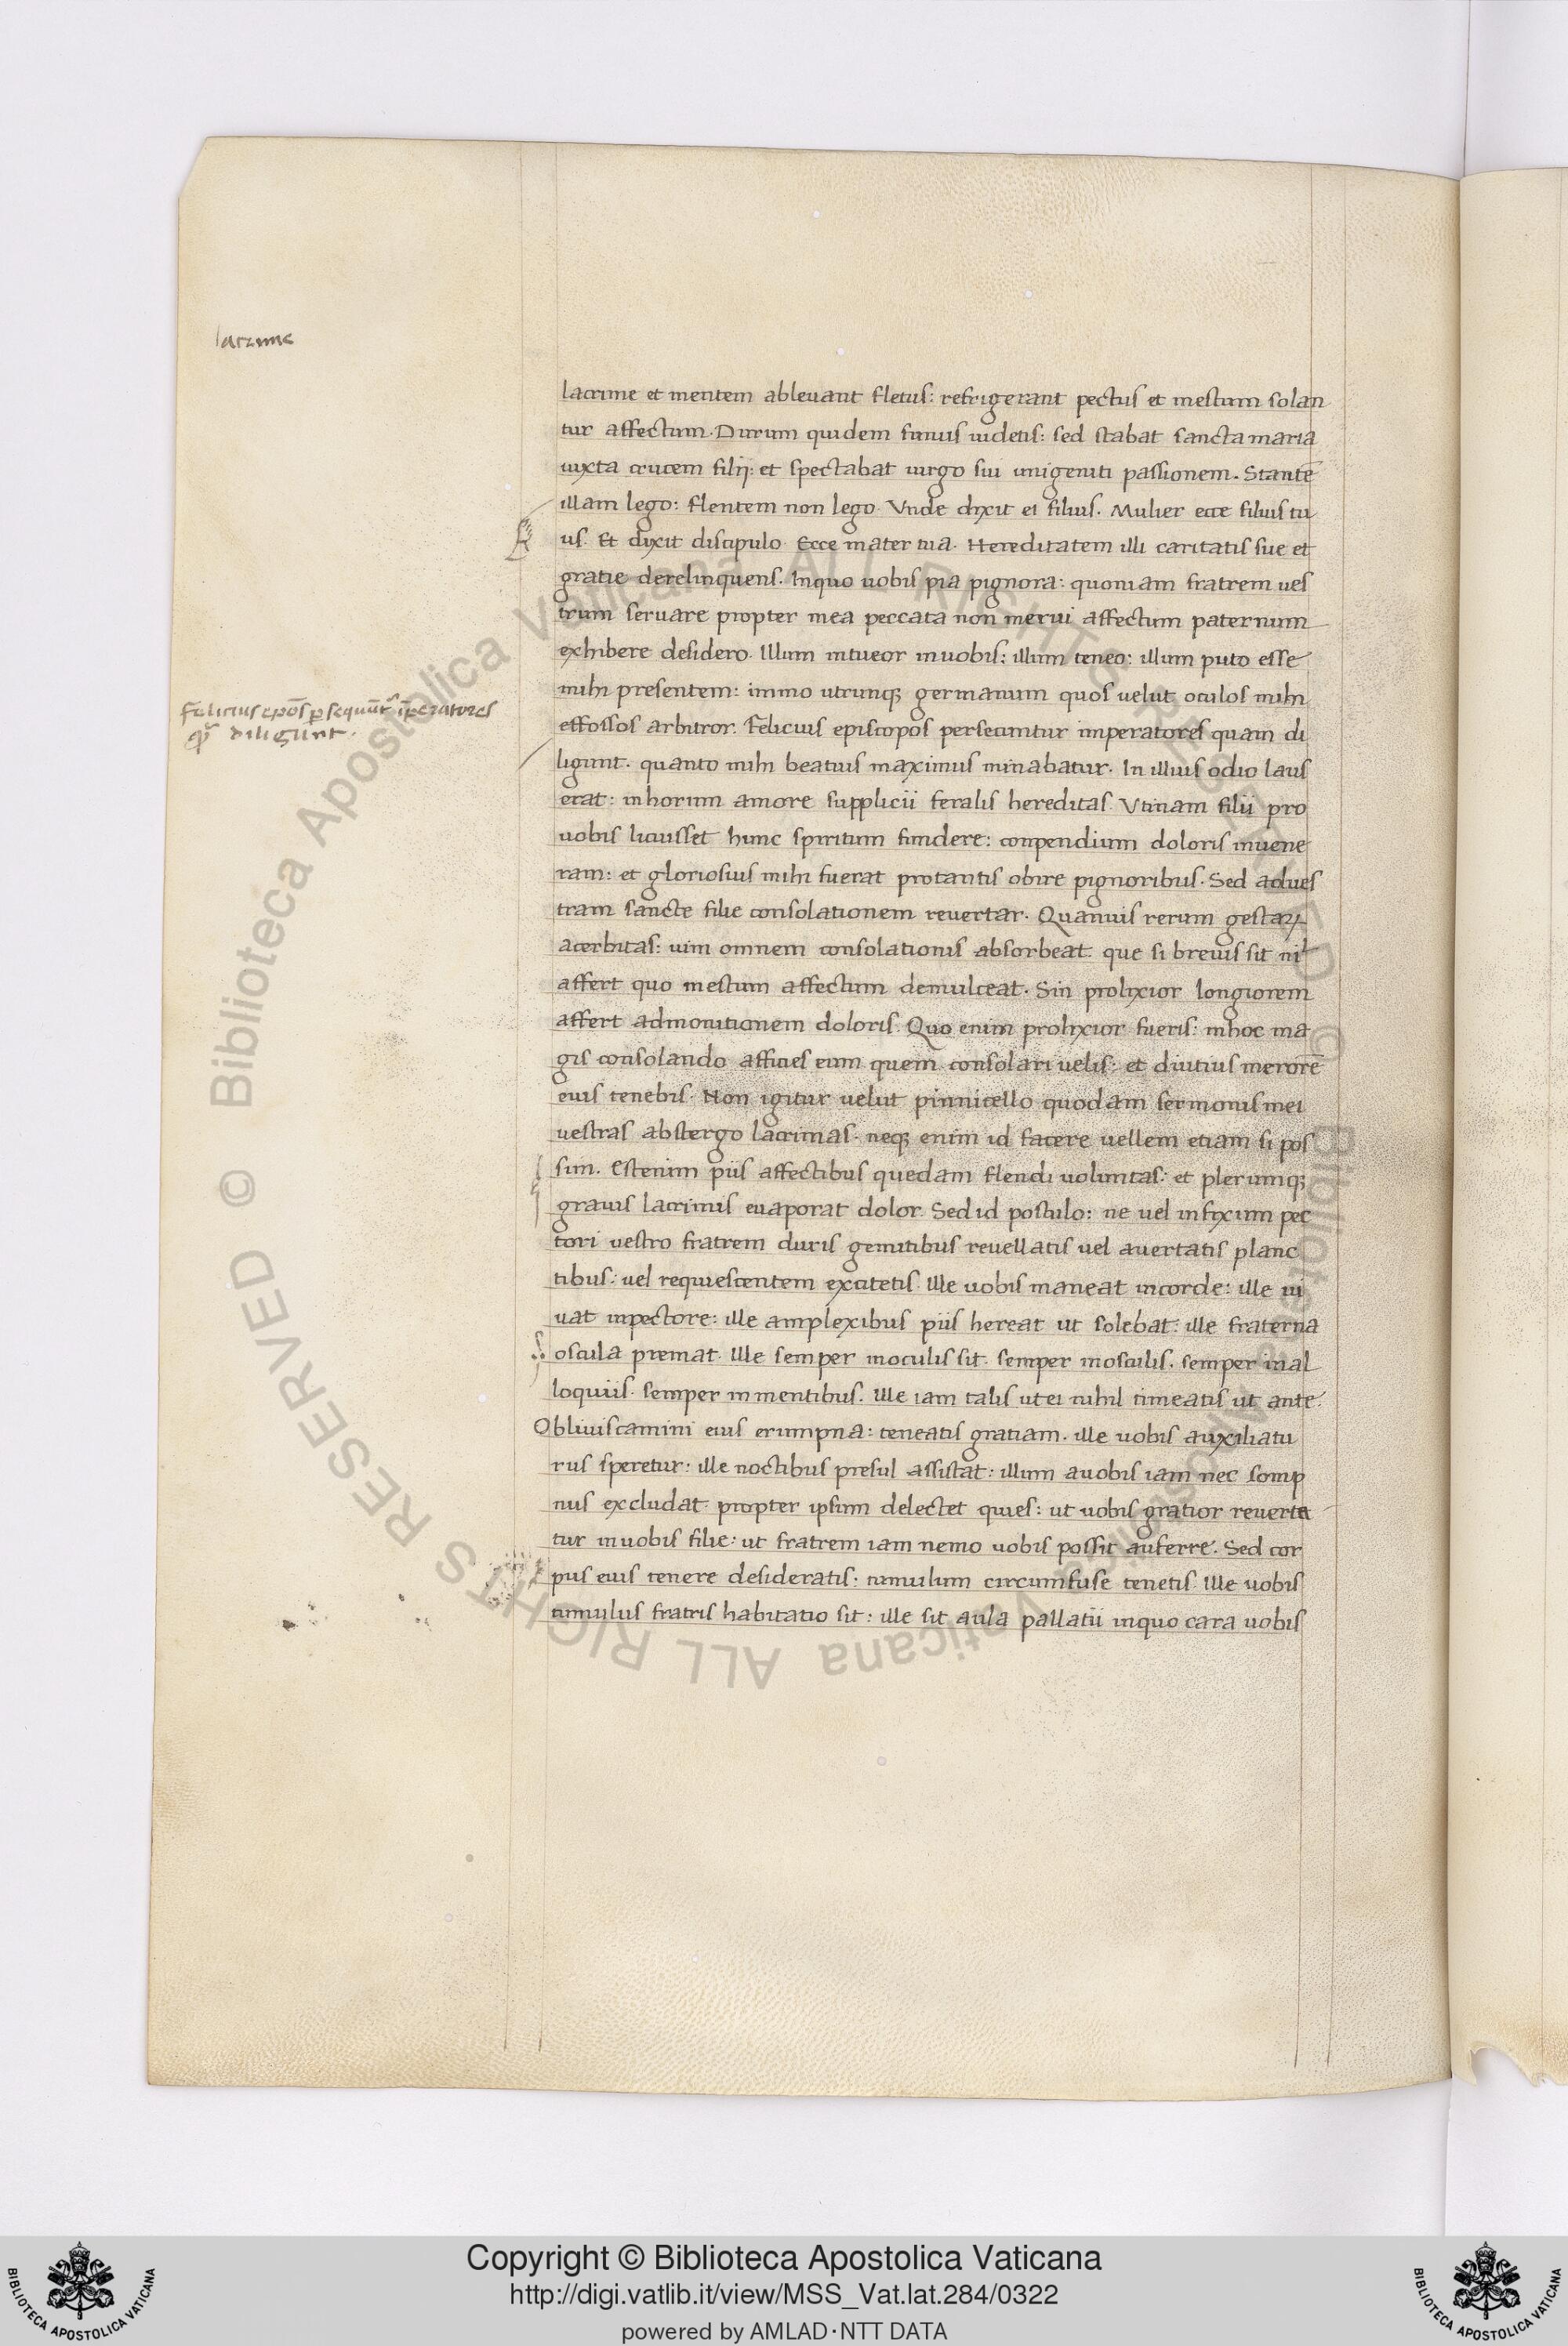 lacrime
lacrime et mentem ableuant fletus: refrigerant pectus et mestum solan
tur affectum. Durum quidem funus uidetis: sed stabat sancta maria
iuxta crucem filij: et spectabat uirgo sui unigeniti passionem. Stantē
illam lego: flentem non lego. Vnde dixit ei filius. Mulier ecce filius tu
us. Et dixit discipulo. Ecce mater tua. Hereditatem illi caritatis sue et
gratie derelinquens. Inquo uobis pia pignora: quoniam fratrem ues
trum seruare propter mea peccata non merui affectum paternum
exhibere desidero. Illum intueor inuobis: illum teneo: illum puto esse
mihi presentem: immo utrunqꝫ germanum quos uelut oculos mihi
Felicius epōs ꝑsequūt᷑ īperatores
diligunt.
effossos arbitror. Felicius episcopos persecuntur imperatores quam di
ligunt. quanto mihi beatius maximus minabatur. In illius odio laus
erat: inhorum amore supplicii feralis hereditas. Vtinam filii pro
uobis licuisset hunc spiritum fundere: conpendium doloris inuene
ram: et gloriosius mihi fuerat protantis obire pignoribus. Sed adues
tram sancte filie consolationem reuertar. Quanuis rerum gestaꝝ
acerbitas: uim omnem consolationis absorbeat. que si breuis sit nil
affert quo mestum affectum demulceat. Sin prolixior longiorem
affert admonitionem doloris. Quo enim prolixior fueris: inhoc ma
gis consolando afficies eum quem consolari uelis: et diutius merorē
eius tenebis. Non igitur uelut pinnicello quodam sermonis mei
uestras abstergo lacrimas. neqꝫ enim id facere uellem etiam si pos
sim. Estenim piis affectibus quedam flendi uoluntas: et plerumqꝫ
grauis lacrimis euaporat dolor. Sed id postulo: ne uel infixum pec
tori uestro fratrem duris gemitibus reuellatis uel auertatis planc
tibus: uel requiescentem excitetis. Ille uobis maneat incorde: ille ui
uat inpectore: ille amplexibus piis hereat ut solebat: ille fraterna
oscula premat. Ille semper inoculis sit. semper inosculis. semper inal
loquiis. semper inmentibus. Ille iam talis ut ei nihil timeatis ut ante.
Obliuiscamini eius erumpna: teneatis gratiam. ille uobis auxiliatu
rus speretur: ille noctibus presul assistat: illum auobis iam nec somp
nus excludat. propter ipsum delectet quies: ut uobis gratior reuerta
tur inuobis filie: ut fratrem iam nemo uobis possit auferre. Sed cor
pus eius tenere desideratis: tumulum circumfuse tenetis. Ille uobis
tumulus fratris habitatio sit: ille sit aula pallatii inquo cara uobis
© Biblioteca Apostolica Vaticana ALL RIGHTS RESERVED
© Biblioteca Apostolica Vaticana ALL RIGHTS RESERVED
BIBLIOTECA APOSTOLICA VATICANA
Copyright © Biblioteca Apostolica Vaticana
http://digi.vatlib.it/view/MSS_Vat.lat.284/0322
powered by AMLAD·NTT DATA
BIBLIOTECA APOSTOLICA VATICANA